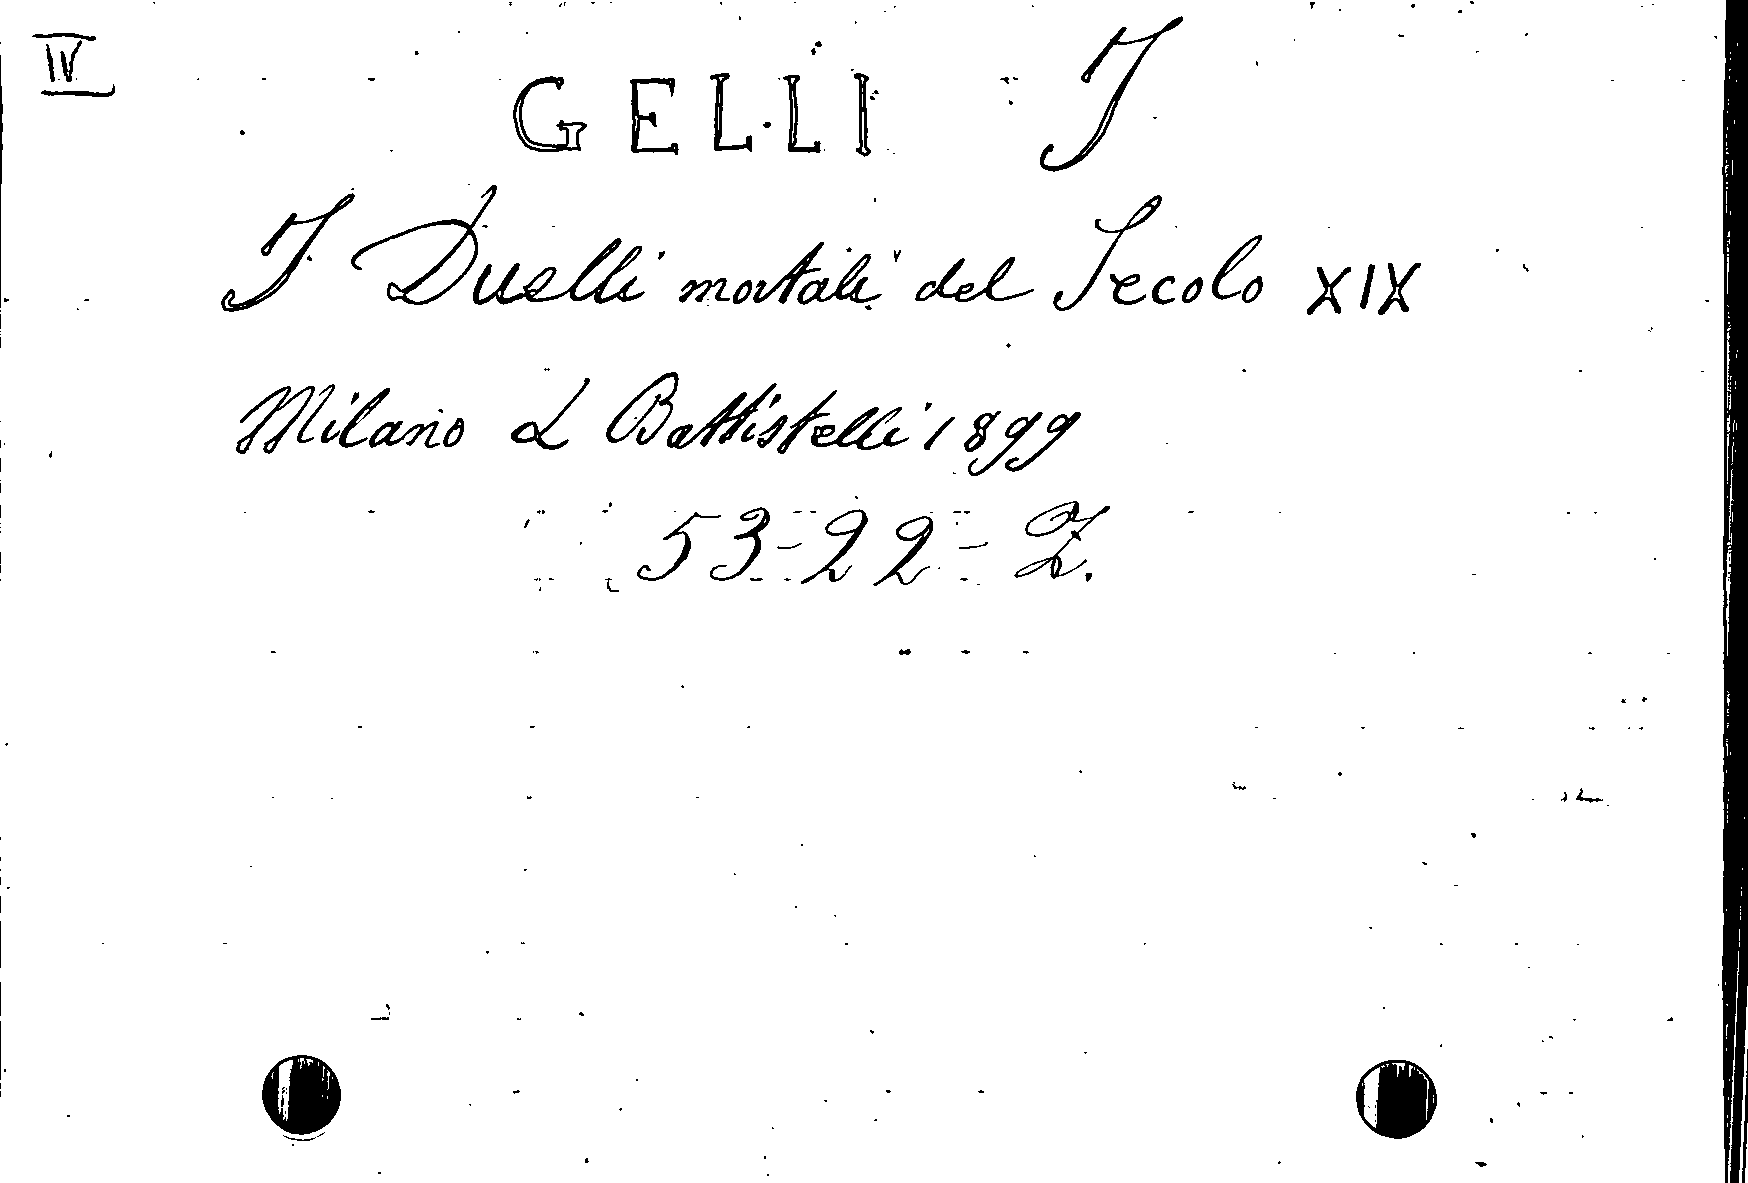 IV
GELLI J
I Duelli mortali del Secolo XIX
Milano L Battistelli 1899
53-22-Z.